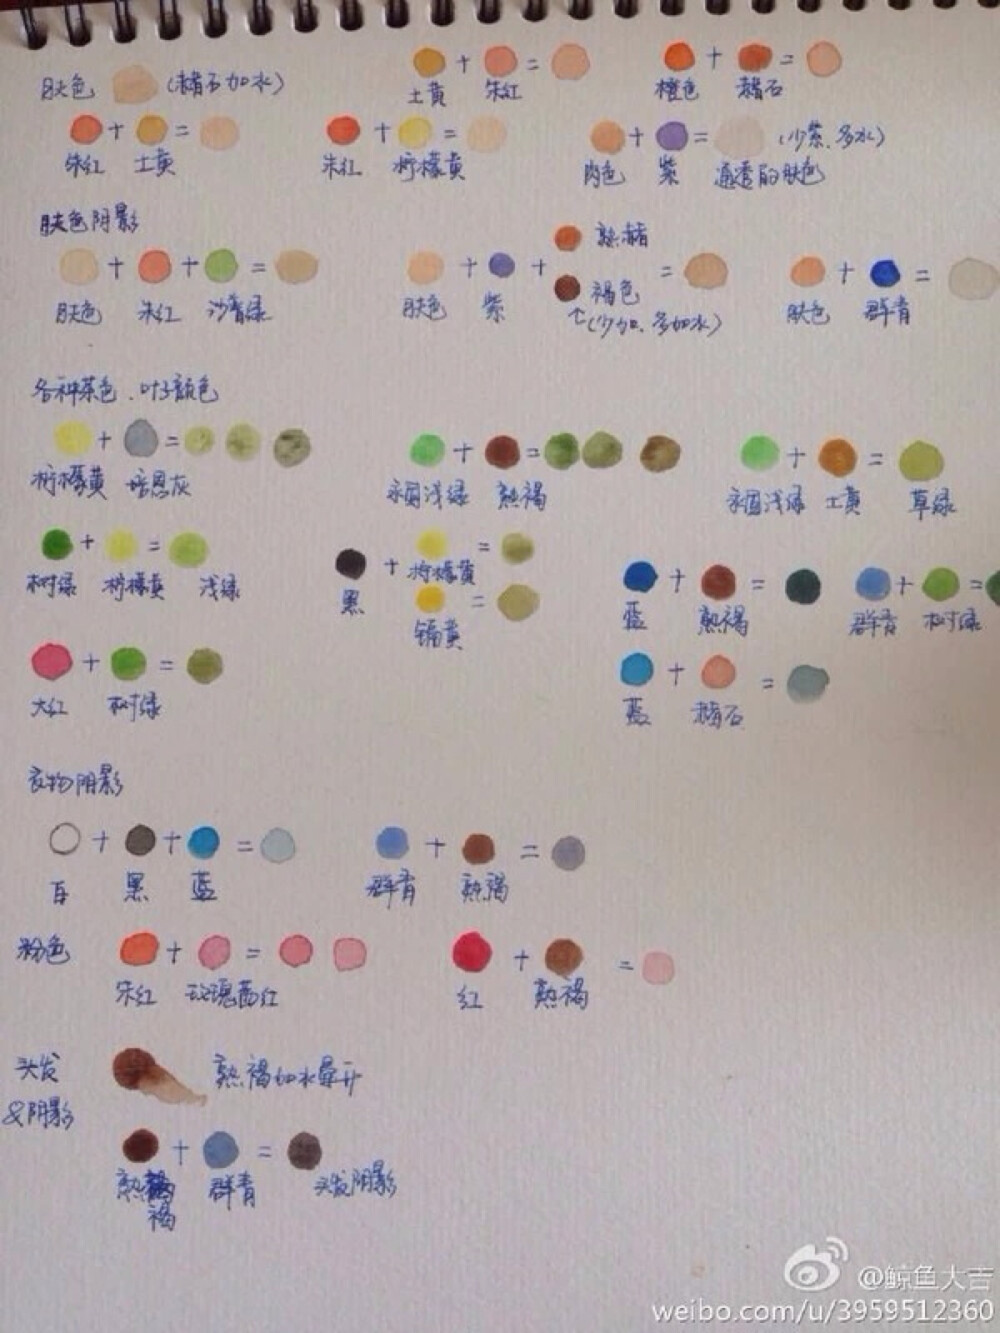 肤色 (赭石加水) 土黄 + 朱红 = 橙色 + 赭石 =
朱红 + 土黄 = 朱红 + 柠檬黄 = 肉色 + 紫 = 通透的肤色 (少紫、多水)
肤色阴影
肤色 + 朱红 + 沙普绿 =
肤色 + 紫 + 熟赭 褐色 =
↑(少加、多加水)
肤色 + 群青 =
各种茶色、叶子颜色
柠檬黄 + 培恩灰 = 永固浅绿 + 熟褐 = 永固浅绿 + 土黄 = 草绿
树绿 + 柠檬黄 = 浅绿
黑 + 柠檬黄 =
镉黄 =
蓝 + 熟褐 = 群青 + 树绿 =
大红 + 树绿 = 蓝 + 赭石 =
衣物阴影
白 + 黑 + 蓝 = 群青 + 熟褐 =
粉色 朱红 + 玫瑰茜红 = 红 + 熟褐 =
头发
&阴影
熟褐加水晕开
熟褐 + 群青 = 头发阴影
@鲸鱼大吉
weibo.com/u/3959512360